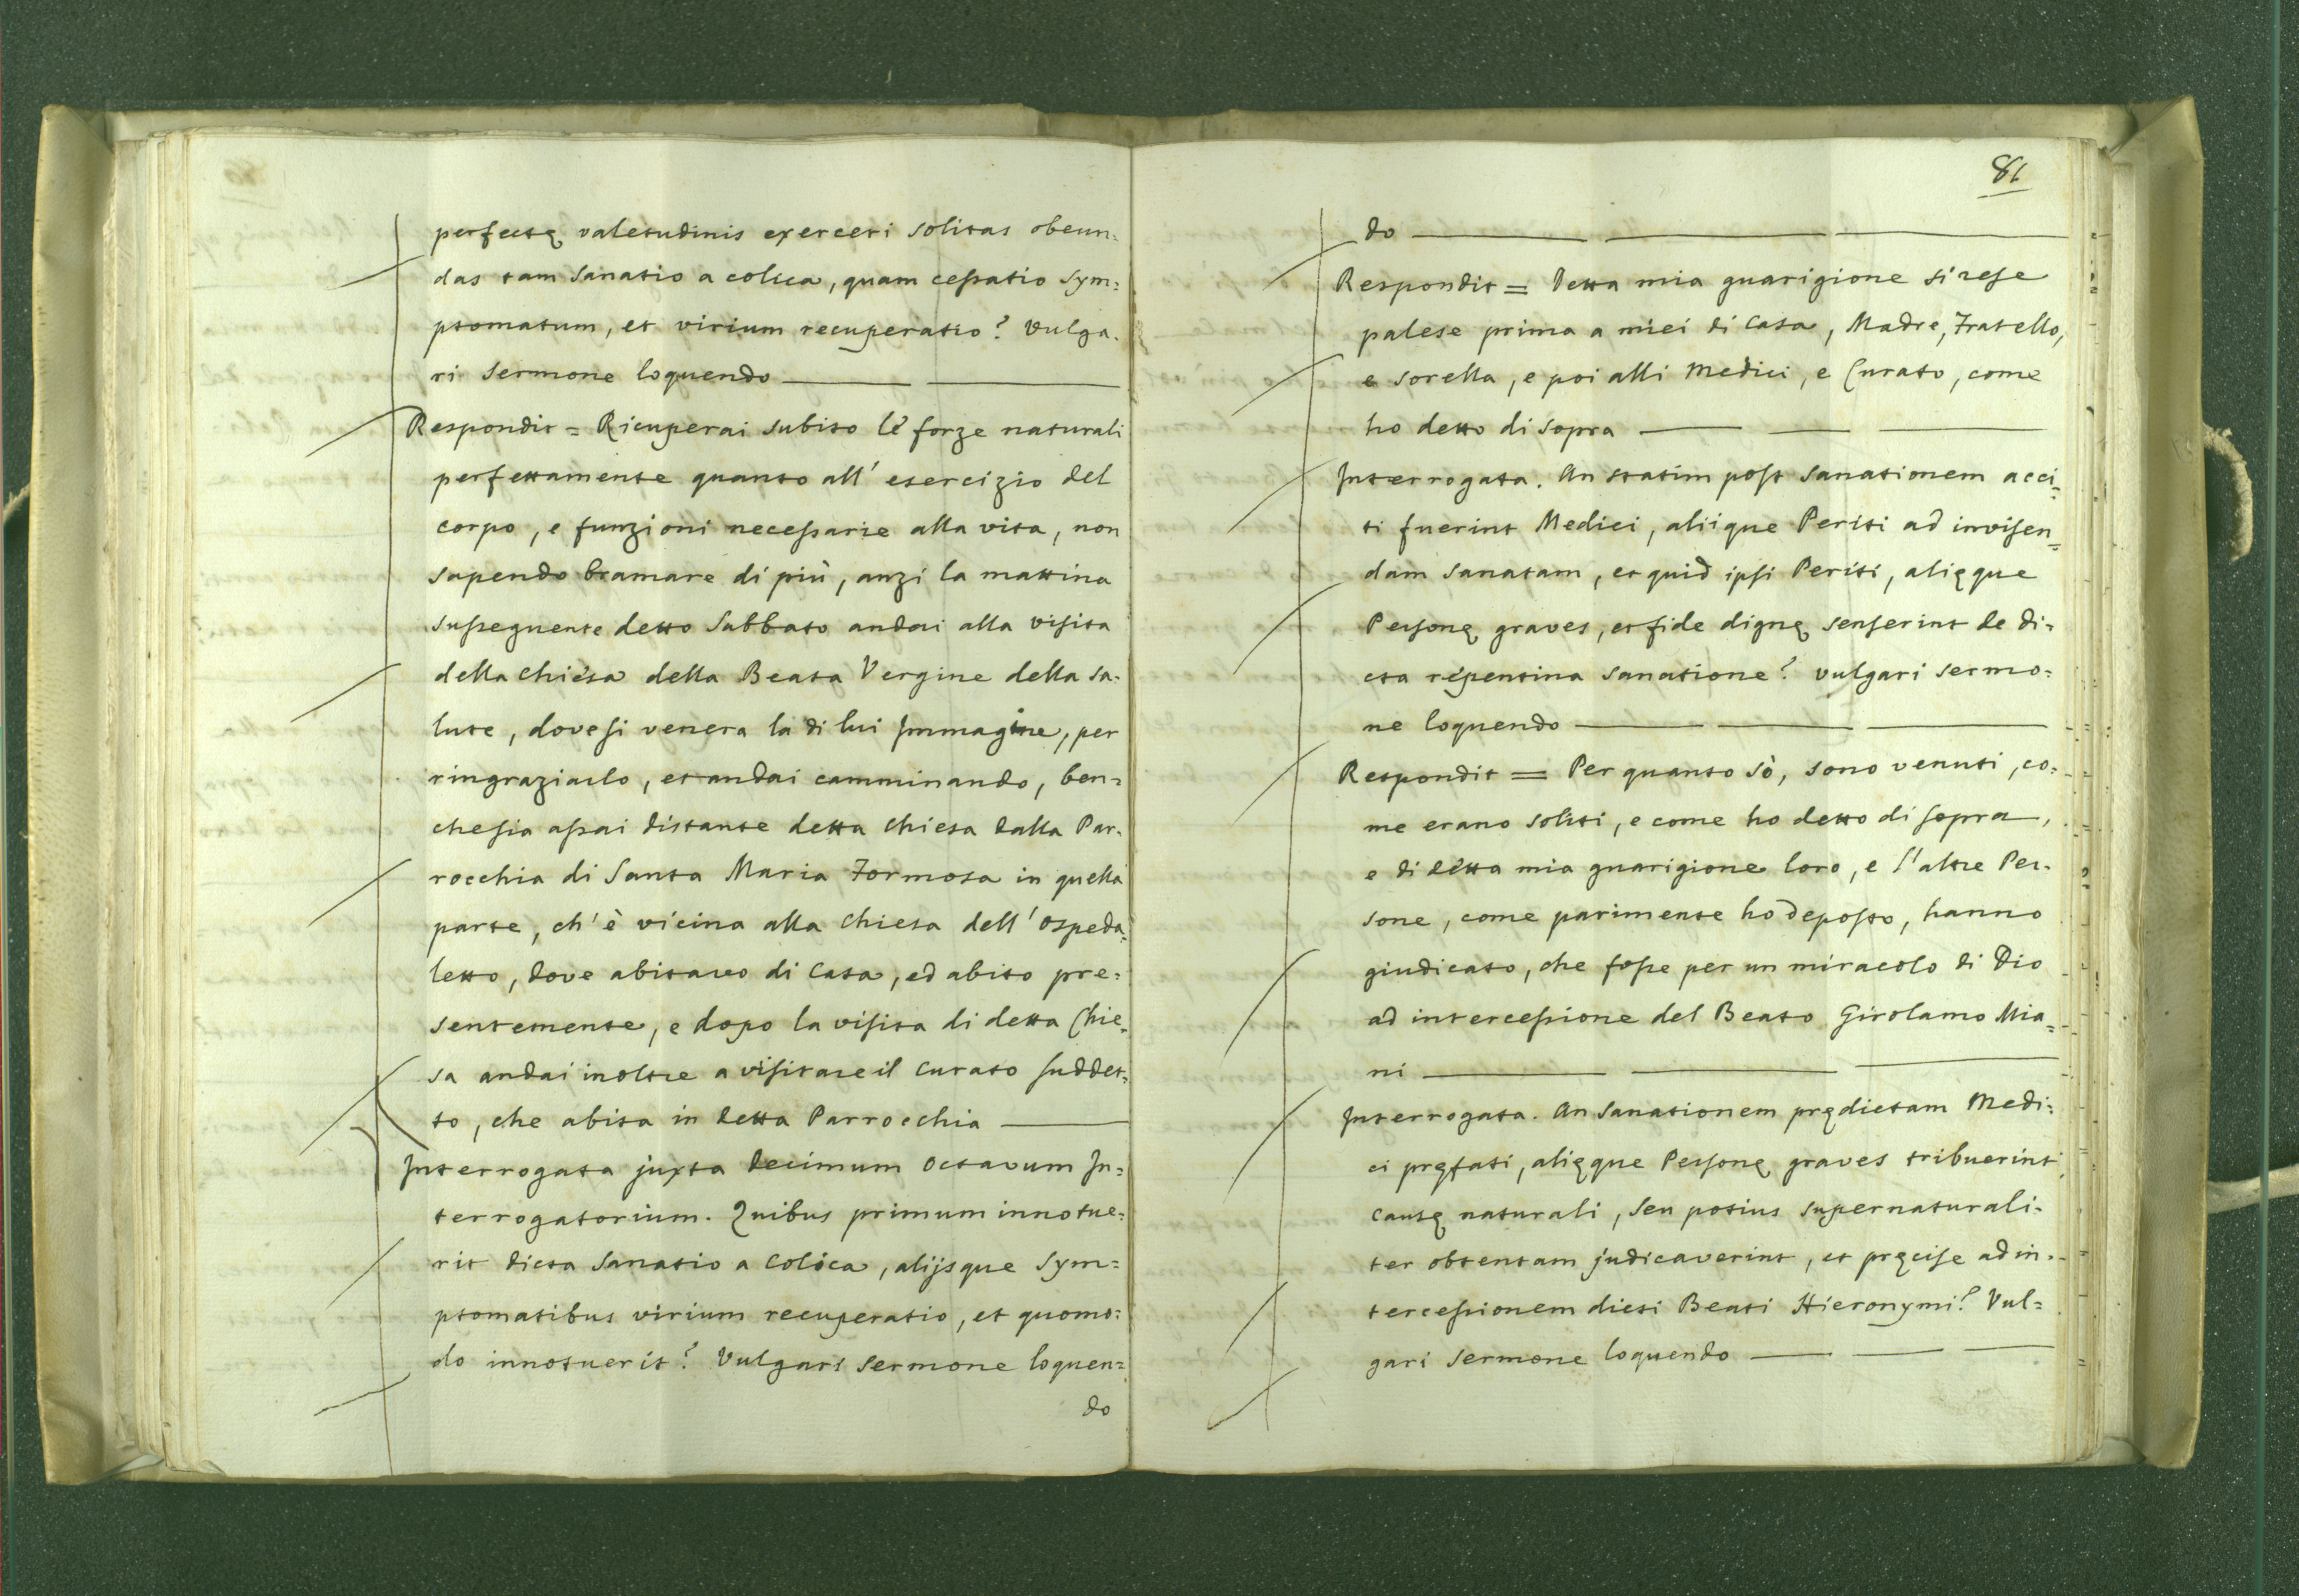 perfectę valetudinis exerceri solitas obeun=
das tam sanatio a colica, quam cessatio sym=
ptomatum, et virium recuperatio? Vulga=
ri sermone loquendo
Respondit = Ricuperai subito le forze naturali
perfettamente quanto all' esercizio del
corpo, e funzioni necessarie alla vita, non
sapendo bramare di più, anzi la mattina
susseguente detto Sabbato andai alla visita
della chiesa della Beata Vergine della Sa=
lute, dove si venera la di lui Immagine, per
ringraziarlo, et andai camminando, ben=
che sia assai distante detta chiesa dalla Par=
rocchia di Santa Maria Formosa in quella
parte, ch' è vicina alla Chiesa dell' Ospeda=
letto, dove abitavo di Casa, ed abito pre=
sentemente, e dopo la visita di detta Chie=
sa andai inoltre a visitare il Curato suddet=
to, che abita in detta Parrocchia
Interrogata juxta Decimum Octavum In=
terrogatorium. Quibus primum innotue=
rit dicta Sanatio a Colica, alijsque Sym=
ptomatibus virium recuperatio, et quomo=
do innotuerit? Vulgari Sermone loquen=
do
81
do
Respondit = Detta mia guarigione si rese
palese prima a miei di Casa, Madre, Fratello,
e Sorella, e poi alli Medici, e Curato, come
ho detto di sopra
Interrogata. An statim post sanationem acci=
ti fuerint Medici, aliique Periti ad invisen=
dam sanatam, et quid ipsi Periti, alięque
Personę graves, et fide dignę senserint de di=
cta repentina sanatione? vulgari sermo=
ne loquendo
Respondit = Per quanto sò, sono venuti, co=
me erano soliti, e come ho detto di sopra,
e di detta mia guarigione loro, e l'altre Per=
sone, come parimente ho deposto, hanno
giudicato, che fosse per un miracolo di Dio
ad intercessione del Beato Girolamo Mia=
ni
Interrogata. An Sanationem prędictam Medi=
ci pręfati, alięque Personę graves tribuerint
causę naturali, seu potius supernaturali=
ter obtentam judicaverint, et pręcise ad in=
tercessionem dicti Beati Hieronymi? Vul=
gari sermone loquendo